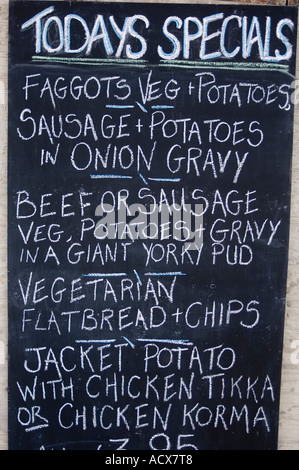 TODAYS SPECIALS
FAGGOTS VEG + POTATOES
SAUSAGE + POTATOES
IN ONION GRAVY
BEEF OR SAUSAGE
VEG, POTATOES + GRAVY
IN A GIANT YORKY PUD
VEGETARIAN
FLATBREAD + CHIPS
JACKET POTATO
WITH CHICKEN TIKKA
OR CHICKEN KORMA
3.95
alamy stock photo